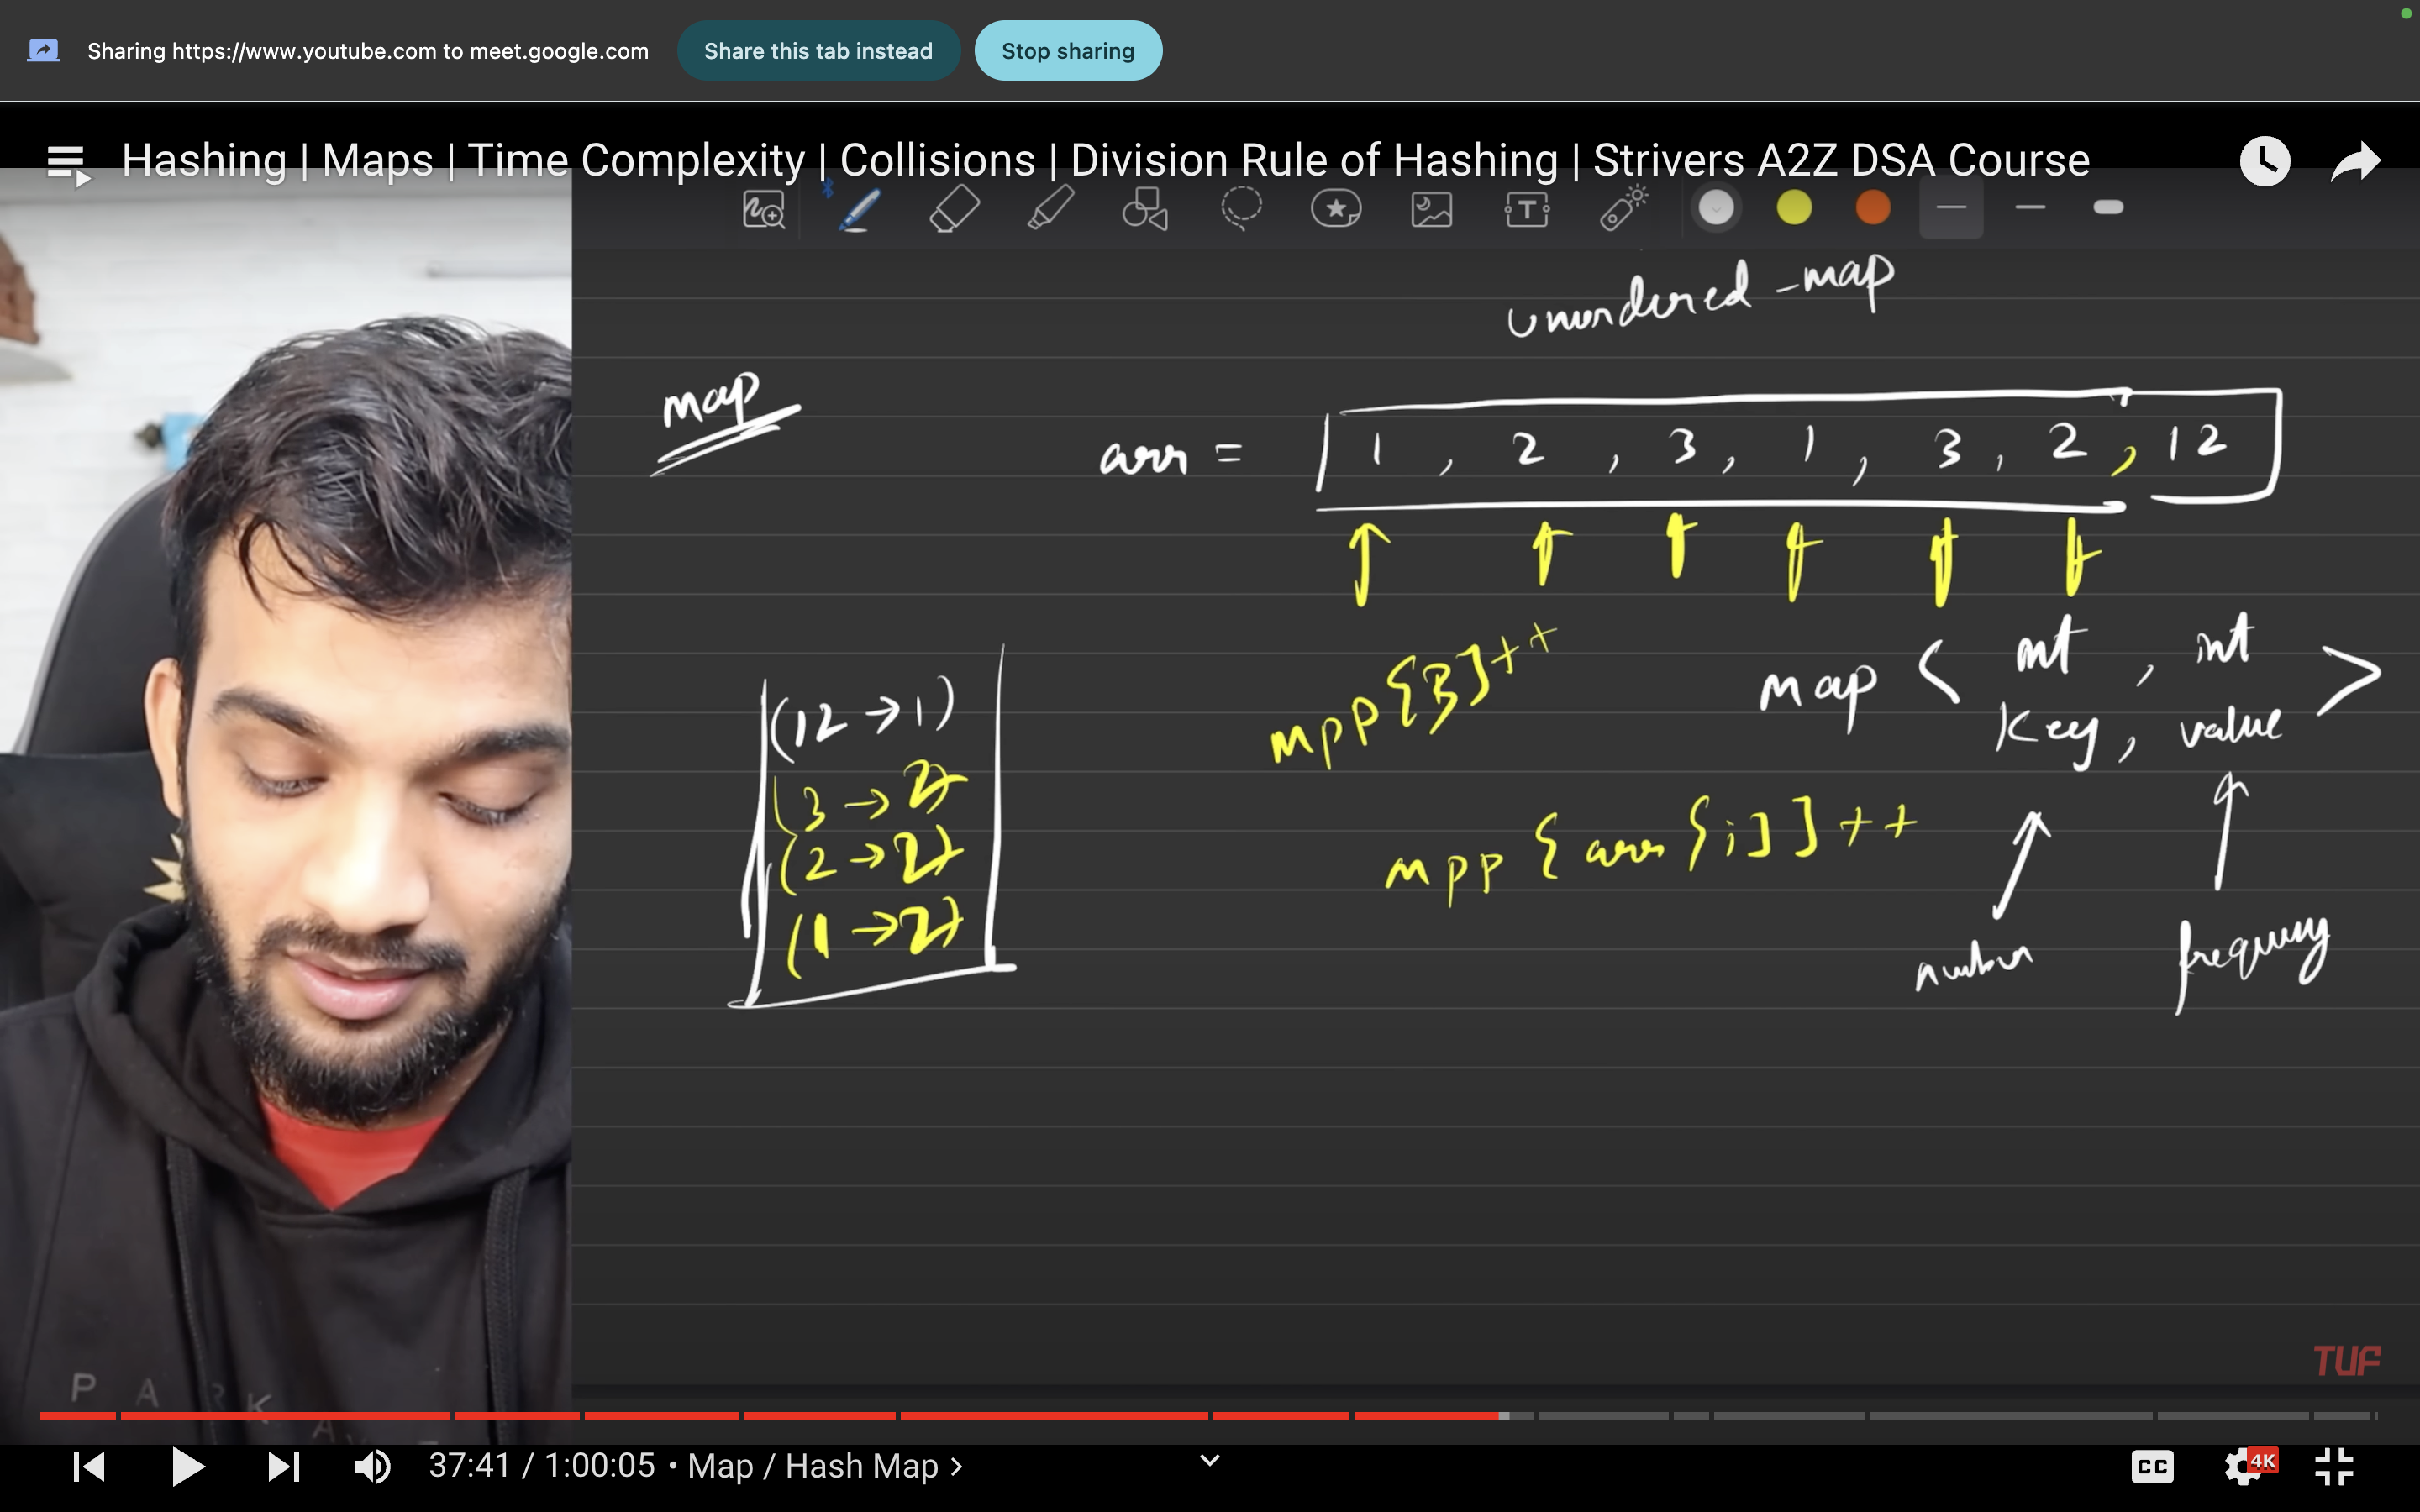 Sharing https://www.youtube.com to meet.google.com Share this tab instead Stop sharing
Hashing | Maps | Time Complexity | Collisions | Division Rule of Hashing | Strivers A2Z DSA Course
T
unordered -map
map
arr = 1 , 2 , 3 , 1 , 3 , 2 , 12
mpp[3]++
map < int , int >
key , value
(12 → 1)
(3 → 2)
(2 → 2)
(1 → 2)
mpp [ arr [i] ] ++
number
frequency
TUF
PARK AV
37:41 / 1:00:05 • Map / Hash Map >
CC
4K